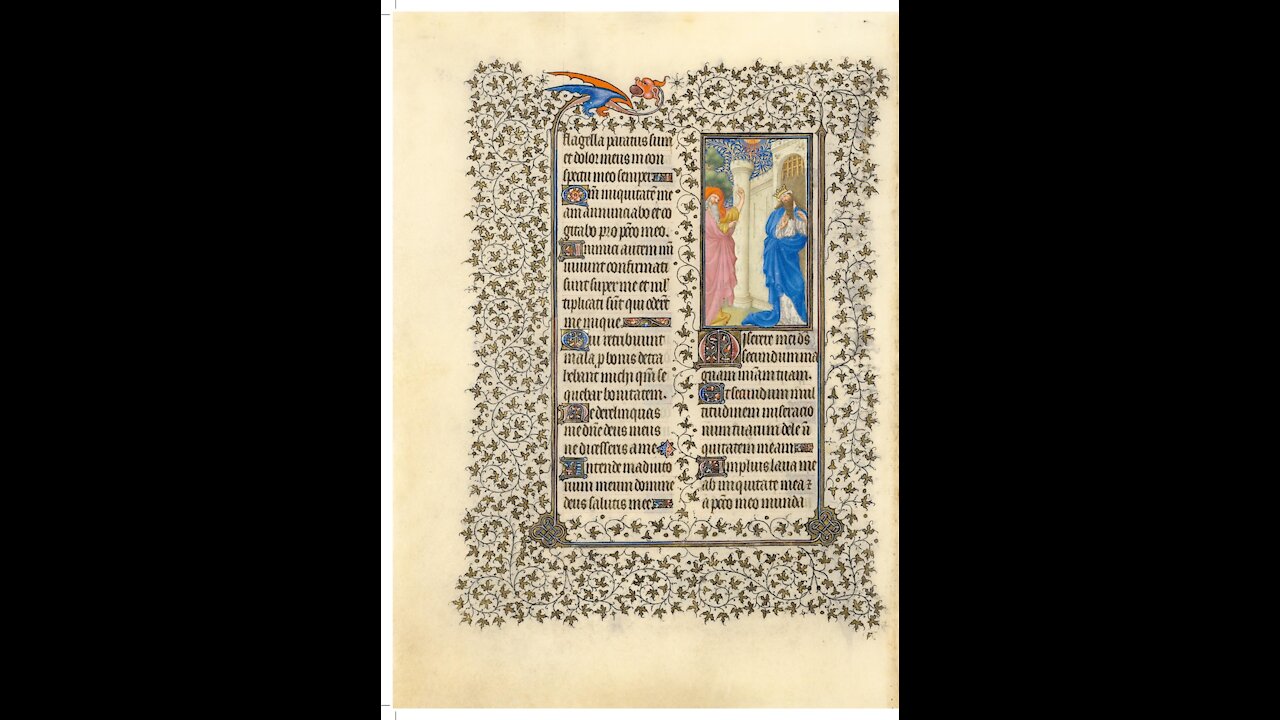 flagella paratus sum
et dolor meus in con
spectu meo semper
Qm̄ iniquitatē me
am annunciabo et co
gitabo p̲ro pctō meo.
Inimici autem mei
uiuunt confirmati
sunt super me et ml̄
tiplicati sūt qui oderūt
me inique
Qui retribuunt
mala p̲ bonis detra
hebant michi qm̄ se
quebar bonitatem.
Ne derelinquas
me dn̄e deus meus
ne discesseris a me
Intende in adiuto
rium meum domine
deus salutis mee
Miserere mei ds̄
secundum ma
gnam miām tuam.
Et secundum mul
titudinem miseracio
num tuarum dele in̄
quitatem meam
Amplius laua me
ab iniquitate mea ⁊
a pctō meo munda